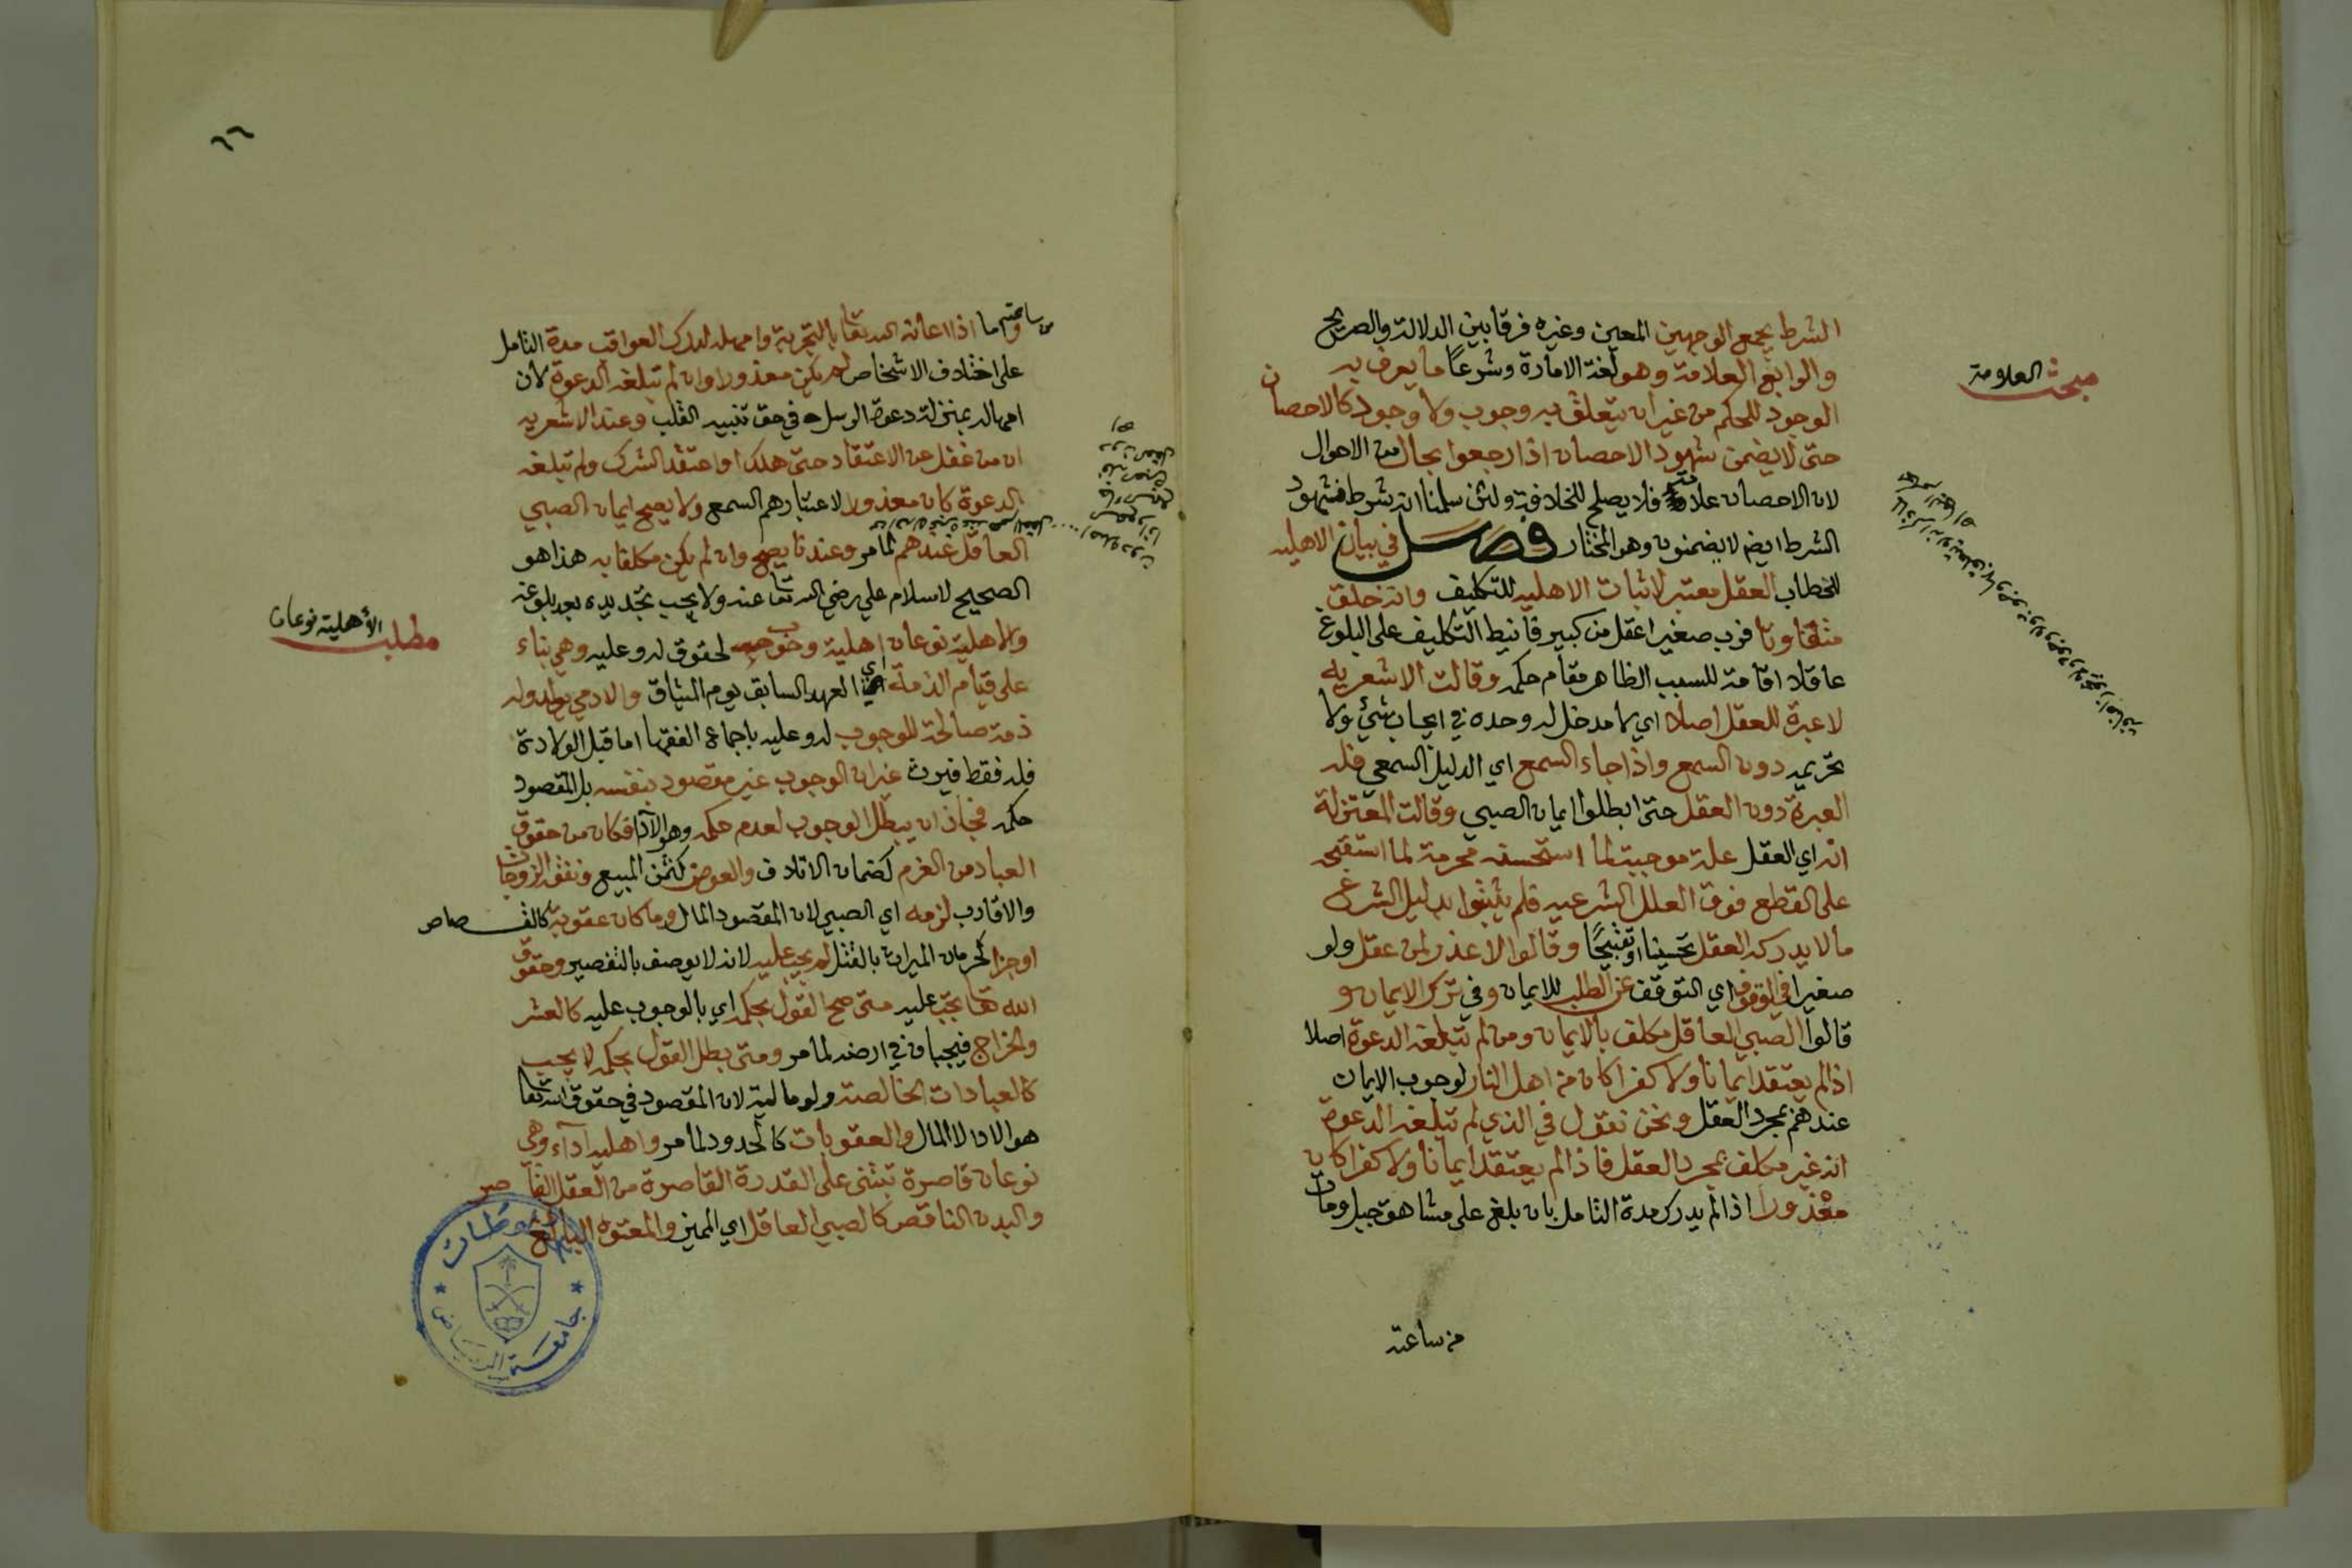 الشرط يجمع الوجهين المعين وغيره فرقا بين الدلالة والصريح
والرابع العلامة وهو لغة الامارة وشرعاً ما يعرف به
مبحث العلامة
الوجود للحكم من غير ان يتعلق به وجوب ولا وجود كالاحصان
حتى لا يضمن شهود الاحصان اذا رجعوا بحال من الاحوال
لان الاحصان علامة فلا يصلح للخلافة ولئن سلمنا انه شرط فشهود
الشرط ايضا لا يضمنون وهو المختار فصل في بيان الاهليه
للخطاب العقل معتبر لاثبات الاهليه للتكليف وانه خلق
متفاوتا فرب صغير اعقل من كبير فانيط التكليف على البلوغ
عاقلا اقامة للسبب الظاهر مقام حكمه وقالت الاشعريه
لا عبرة للعقل اصلا اي لا مدخل له وحده في ايجاب شئ ولا
تحريمه دون السمع واذا جاء السمع اي الدليل السمعي فله
العبرة دون العقل حتى ابطلوا ايمان الصبي وقالت المعتزلة
انه اي العقل علة موجبة لما استحسنه محرمة لما استقبحه
على القطع فوق العلل الشرعيه فلم يثبتوا بدليل الشرع
ما لا يدركه العقل تحسينا او تقبيحًا وقالوا لا عذر لمن عقل ولو
صغيرا في الوقوف اي التوقف عن الطلب للايمان وفي ترك الايمان و
قالوا الصبي العاقل مكلف بالايمان ومن لم تبلغه الدعوة اصلا
اذا لم يعتقد ايمانا ولا كفرا كان من اهل النار لوجوب الايمان
عندهم بمجرد العقل ونحن نقول في الذي لم تبلغه الدعوة
انه غير مكلف بمجرد العقل فاذا لم يعتقد ايمانا ولا كفرا كان
معذورا اذا لم يدرك مدة التامل بان بلغ على مشاهق جبل ومات
من ساعته
٦٦
من ساعته واما اذا اعانه الله تعا بالتجربة وامهله لدرك العواقب مدة التامل
على اختلاف الاشخاص لم يكن معذورا وان لم تبلغه الدعوة لان
امهاله بمنزلة دعوة الرسل في حق تنبيه القلب وعند الاشعريه
ان من غفل عن الاعتقاد حتى هلك او اعتقد الشرك ولم تبلغه
الدعوة كان معذورا لاعتبارهم السمع ولا يصح ايمان الصبي
العاقل عندهم لما مر وعندنا يصح وان لم يكن مكلفا به هذا هو
الصحيح لاسلام علي رضي الله تعا عنه ولا يجب تجديده بعد بلوغه
والاهلية نوعان اهلية وجوب لحقوق له وعليه وهي بناء
مطلب الأهلية نوعان
على قيام الذمة اي العهد السابق يوم الميثاق والادمي يولد وله
ذمة صالحة للوجوب له وعليه باجماع الفقها اما قبل الولادة
فله فقط فيرث غير ان الوجوب غير مقصود بنفسه بل المقصود
حكمه فجاز ان يبطل الوجوب لعدم حكمه وهو الادا فكان من حقوق
العباد من الغرم كضمان الاتلاف والعوض كثمن المبيع ونفقة الزوجات
والاقارب لزمه اي الصبي لان المقصود المال وما كان عقوبة كالقصاص
او جزا كحرمان الميراث بالقتل لم يجب عليه لانه لا يوصف بالتقصير وحقوق
الله تعا تجب عليه متى صح القول بحكمه اي بالوجوب عليه كالعشر
والخراج فيجبان في ارضه لما مر ومتى بطل القول بحكمه لا يجب
كالعبادات الخالصة ولو مالية لان المقصود في حقوق الله تعا
هو الادا لا المال والعقوبات كالحدود لما مر واهلية آداء وهي
نوعان قاصرة تبتنى على القدرة القاصرة من العقل القاصر
والبدن الناقص كالصبي العاقل اي المميز والمعتوه البالغ
مخطوطات
جامعة الرياض